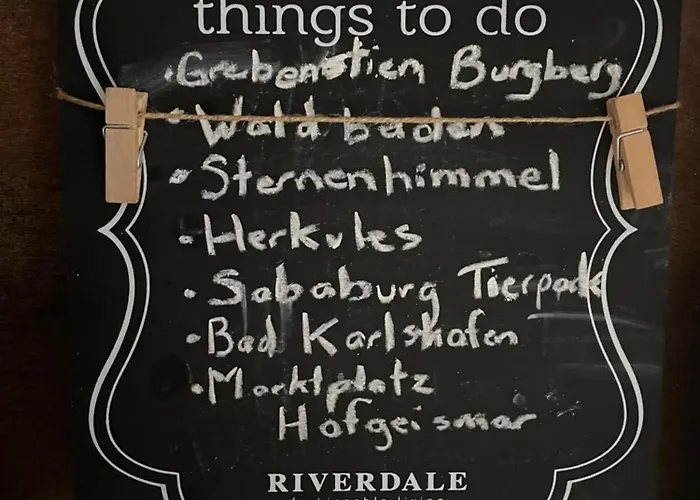 things to do
• Grebenstien Burgberg
• Wald baden
• Sternenhimmel
• Herkules
• Sababurg Tierpark
• Bad Karlshafen
• Marktplatz
Hofgeismar
RIVERDALE